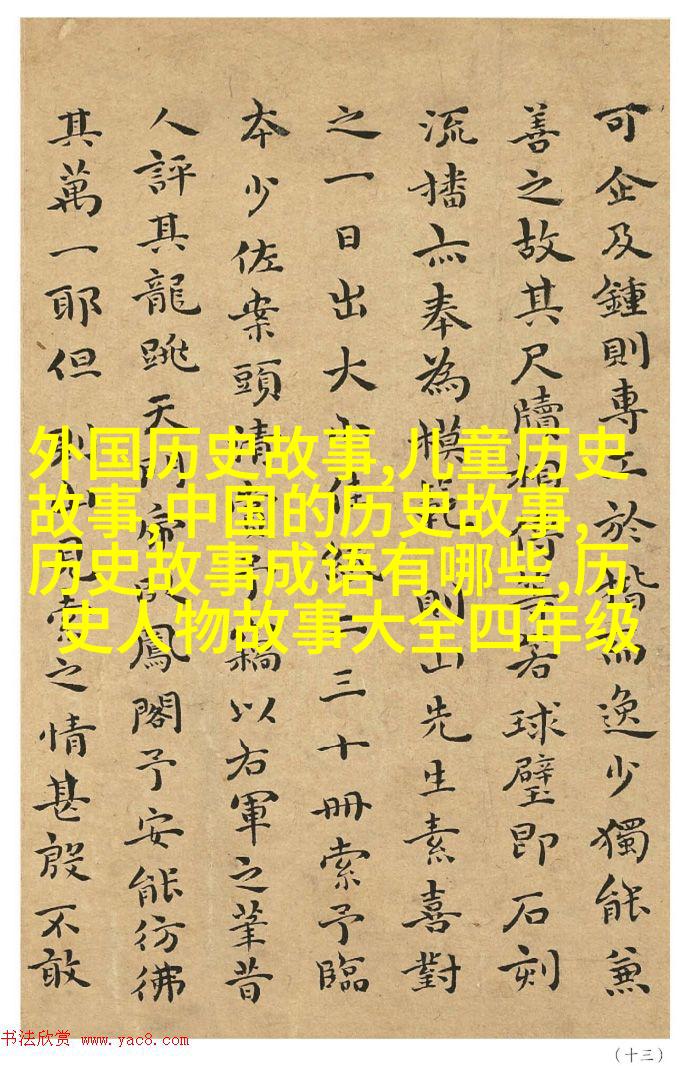 可企及鍾則專工於楷而逸少獨能兼
善之故其尺牘相若球璧即石刻
流播亦奉為模範則山先生素喜對
之一日出大二三十冊索予臨
本少佐案頭予以右軍之筆昔
人評其龍跳天門鳳閣予安能彷彿
其萬一耶但見索之情甚殷不敢
外国历史故事,儿童历史
故事,中国的历史故事,
历史故事成语有哪些,历
史人物故事大全四年级
书法欣赏 www.yac8.com
（十三）